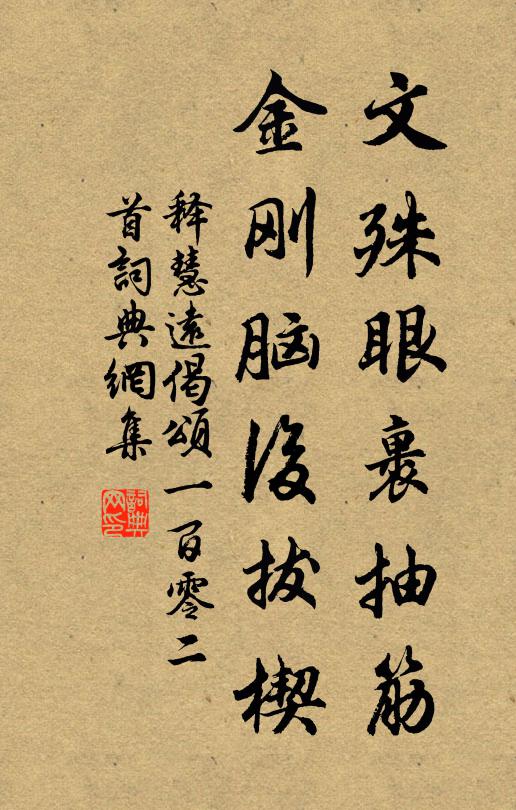 文殊眼裏抽筋
金刚脑後拔楔
释慧遠偈頌一百零二
首詞典網集
詞典网印